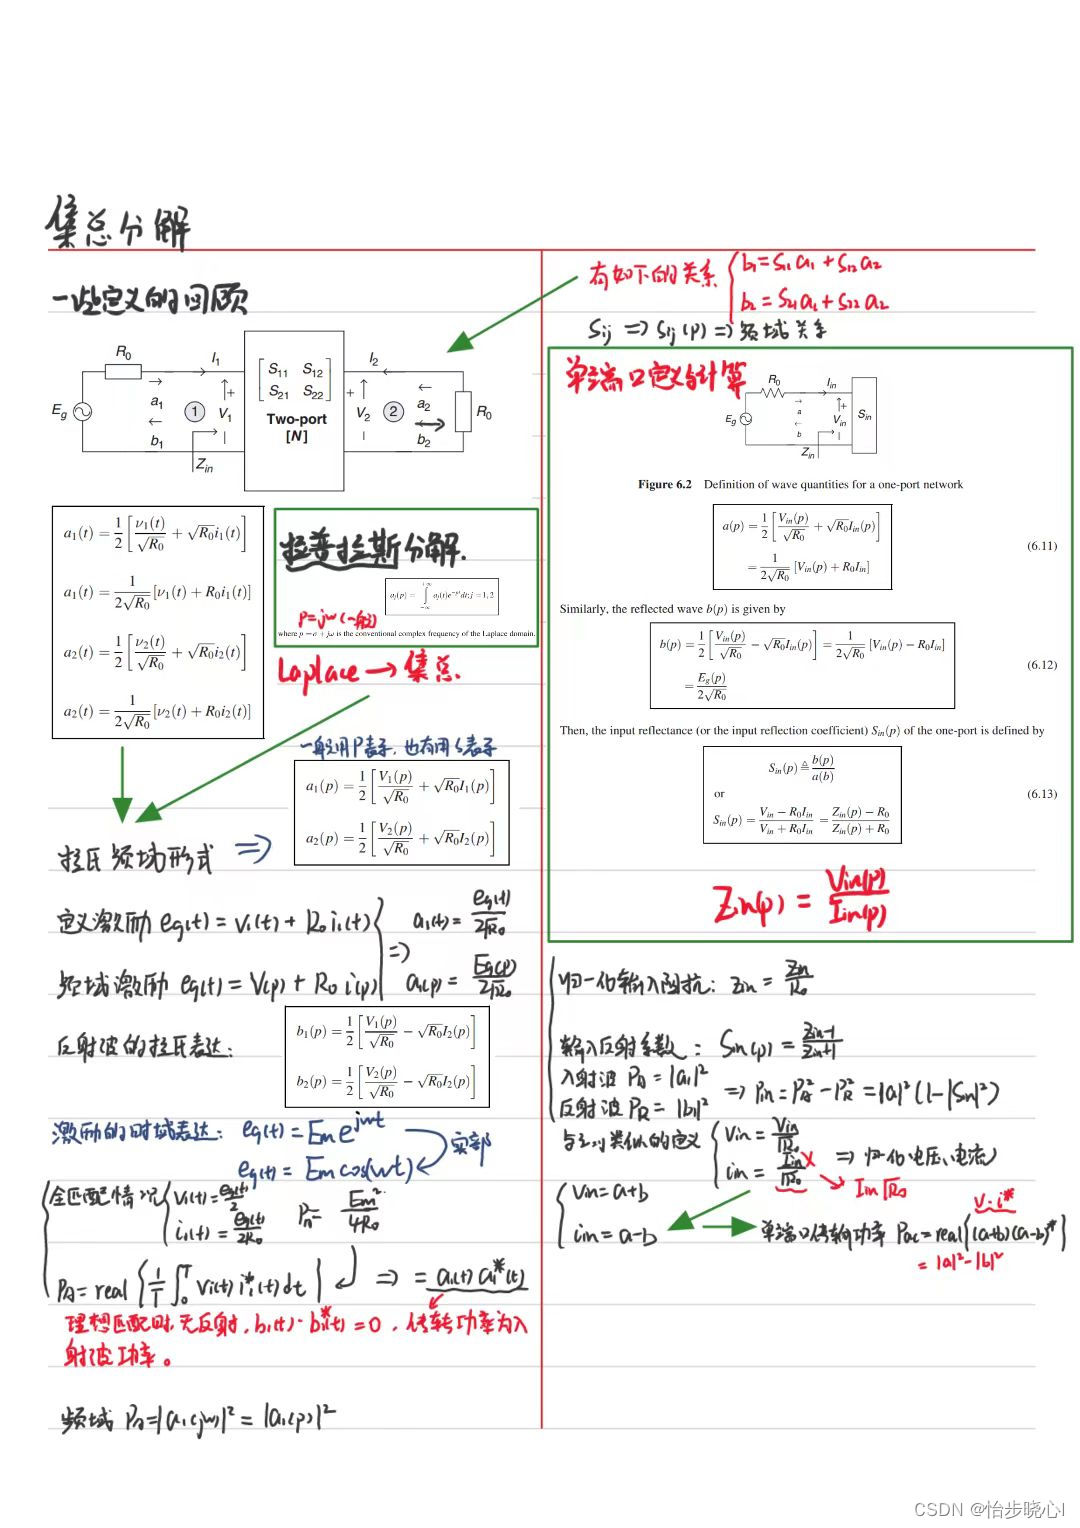 集总分解
一些定义的回顾
R0
I1
I2
Eg
a1
b1
1
+
V1
Zin
S11 S12
S21 S22
Two-port
[N]
+
V2
2
a2
b2
R0
a1(t) = 1/2 [ν1(t)/√R0 + √R0 i1(t)]
a1(t) = 1/(2√R0) [ν1(t) + R0i1(t)]
a2(t) = 1/2 [ν2(t)/√R0 + √R0 i2(t)]
a2(t) = 1/(2√R0) [ν2(t) + R0i2(t)]
拉普拉斯分解.
aj(p) = ∫_{-∞}^{+∞} aj(t)e^{-pt}dt; j = 1, 2
p=jw(一般)
where p = σ + jω is the conventional complex frequency of the Laplace domain.
Laplace → 集总.
一般用P表示,也有用s表示
a1(p) = 1/2 [V1(p)/√R0 + √R0 I1(p)]
a2(p) = 1/2 [V2(p)/√R0 + √R0 I2(p)]
拉氏频域形式 ⇒
定义激励 eg(t) = V1(t) + R0 i1(t)
频域激励 eg(t) = V(p) + R0 i(p)
⇒
a1(t) = eg(t)/2√R0
a1(p) = Eg(p)/2√R0
反射波的拉氏表达:
b1(p) = 1/2 [V1(p)/√R0 − √R0 I2(p)]
b2(p) = 1/2 [V2(p)/√R0 − √R0 I2(p)]
激励的时域表达: eg(t) = Em e^{jwt}
eg(t) = Em cos(wt)
实部
全匹配情况
V1(t) = eg(t)/2
i1(t) = eg(t)/2R0
PA = Em²/4R0
PA = real{1/T ∫_0^T V1(t) i1*(t) dt} ⇒ = a1(t) a1*(t)
理想匹配时,无反射,b1(t)·b1*(t) = 0,传输功率为入
射波功率。
频域 PA = |a1(jw)|² = |a1(p)|²
有如下的关系
b1 = S11 a1 + S12 a2
b2 = S21 a1 + S22 a2
Sij ⇒ Sij(p) ⇒ 频域关系
单端口定义与计算
R0
Iin
Eg
a
b
+
Vin
Sin
Zin
Figure 6.2 Definition of wave quantities for a one-port network
a(p) = 1/2 [Vin(p)/√R0 + √R0 Iin(p)]
= 1/(2√R0) [Vin(p) + R0Iin]
(6.11)
Similarly, the reflected wave b(p) is given by
b(p) = 1/2 [Vin(p)/√R0 − √R0 Iin(p)] = 1/(2√R0) [Vin(p) − R0Iin]
= Eg(p)/2√R0
(6.12)
Then, the input reflectance (or the input reflection coefficient) Sin(p) of the one-port is defined by
Sin(p) ≜ b(p)/a(b)
or
Sin(p) = (Vin − R0Iin)/(Vin + R0Iin) = (Zin(p) − R0)/(Zin(p) + R0)
(6.13)
Zin(p) = Vin(p)/Iin(p)
归一化输入阻抗: Zin = Zin/R0
输入反射系数: Sin(p) = (Zin-1)/(Zin+1)
入射波 PA = |a1|²
反射波 PR = |b1|²
⇒ Pin = PA² − PR² = |a|²(1−|Sin|²)
与之对类似的定义
Vin = Vin/√R0
in = Iin/√R0 X
⇒ 归一化电压、电流
Iin√R0
Vin = a+b
in = a−b
单端口传输功率 Pac = real{(a+b)(a−b)*}
V·i*
= |a|²−|b|²
CSDN @怡步晓心l